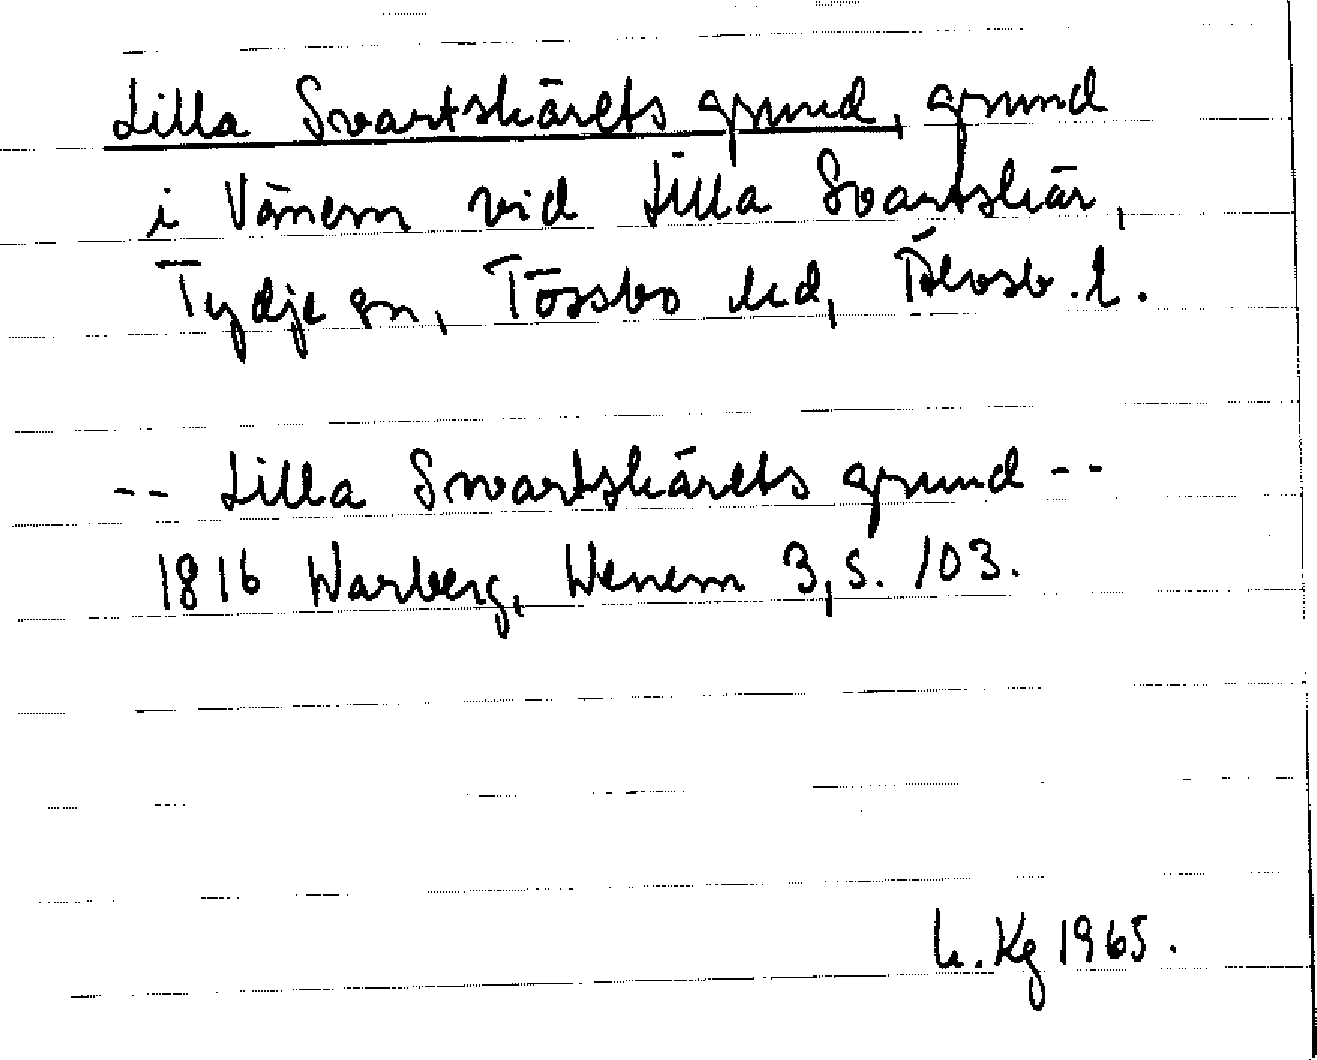 Lilla Svartskärets grund, grund
i Vänern vid Lilla Svartskär,
Tydje sn, Tössbo hd, Älvsb. l.
-- Lilla Swartskärets grund --
1816 Warberg, Wenern 3, s. 103.
h. Kg 1965.